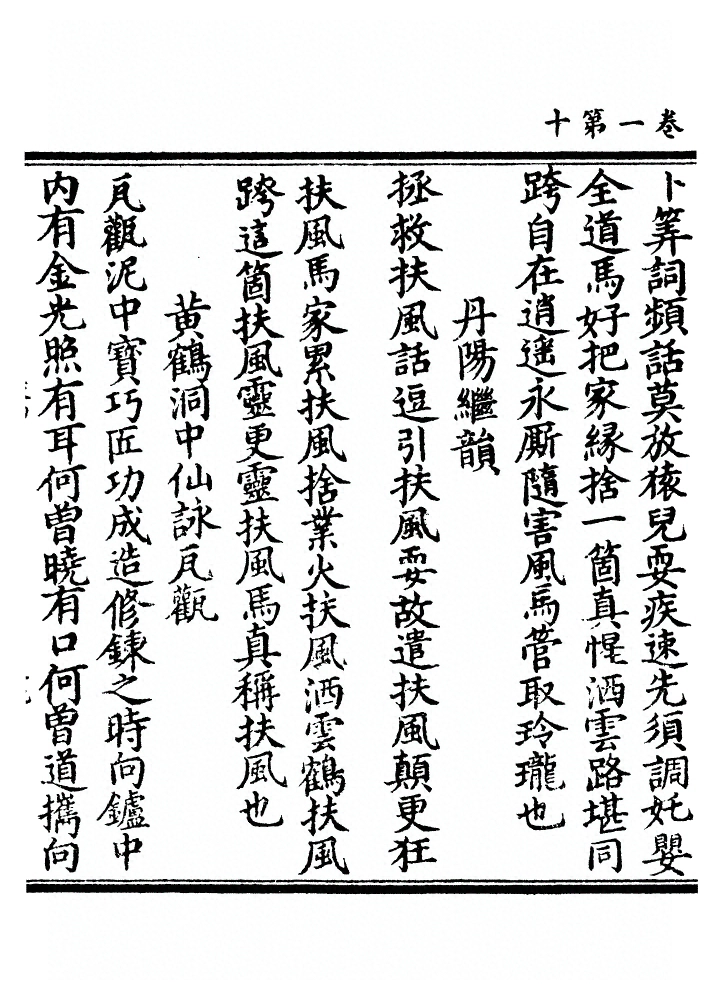 卷一第十
卜筭詞頻話莫放猿兒耍疾速先須調姹嬰
全道馬好把家縁捨一箇真惺洒雲路堪同
跨自在逍遥永厮隨害風焉管取玲瓏也
丹陽繼韻
拯救扶風話逗引扶風耍故遣扶風顛更狂
扶風馬家累扶風捨業火扶風洒雲鶴扶風
跨這箇扶風靈更靈扶風馬真稱扶風也
黄鶴洞中仙詠瓦罐
瓦觀泥中寶巧匠功成造修鍊之時向鑪中
内有金光照有耳何曽曉有口何曽道攜向